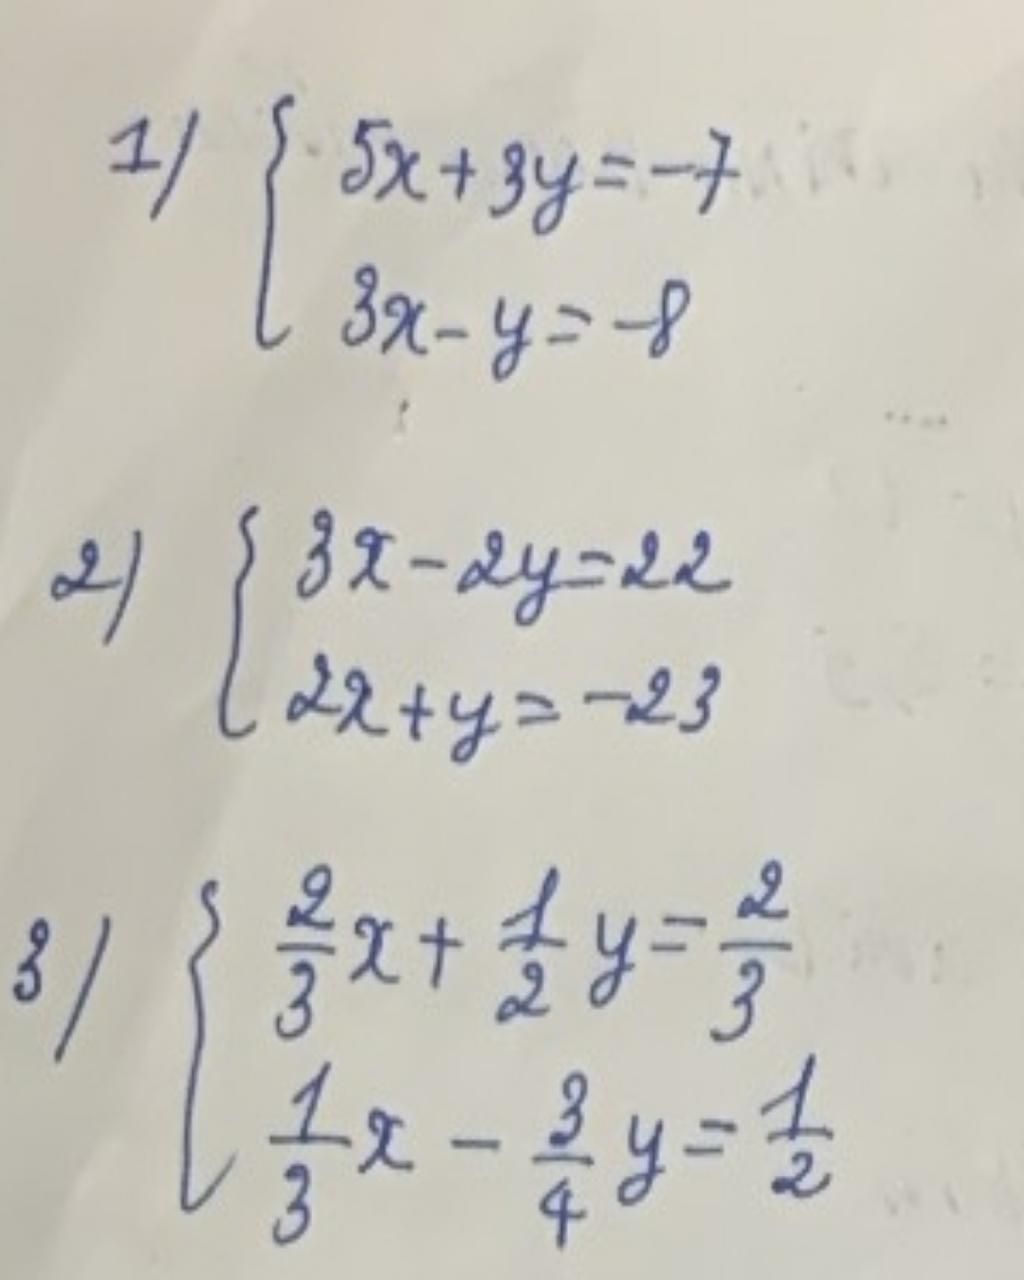 1) { 5x + 3y = -7
3x - y = -8
2) { 3x - 2y = 22
2x + y = -23
3) { 2/3 x + 1/2 y = 2/3
1/3 x - 3/4 y = 1/2